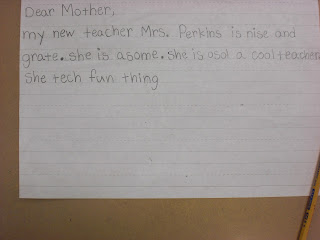 Dear Mother,
my new teacher Mrs. Perkins is nise and
grate. she is asome. she is osol a cool teacher
she tech fun thing